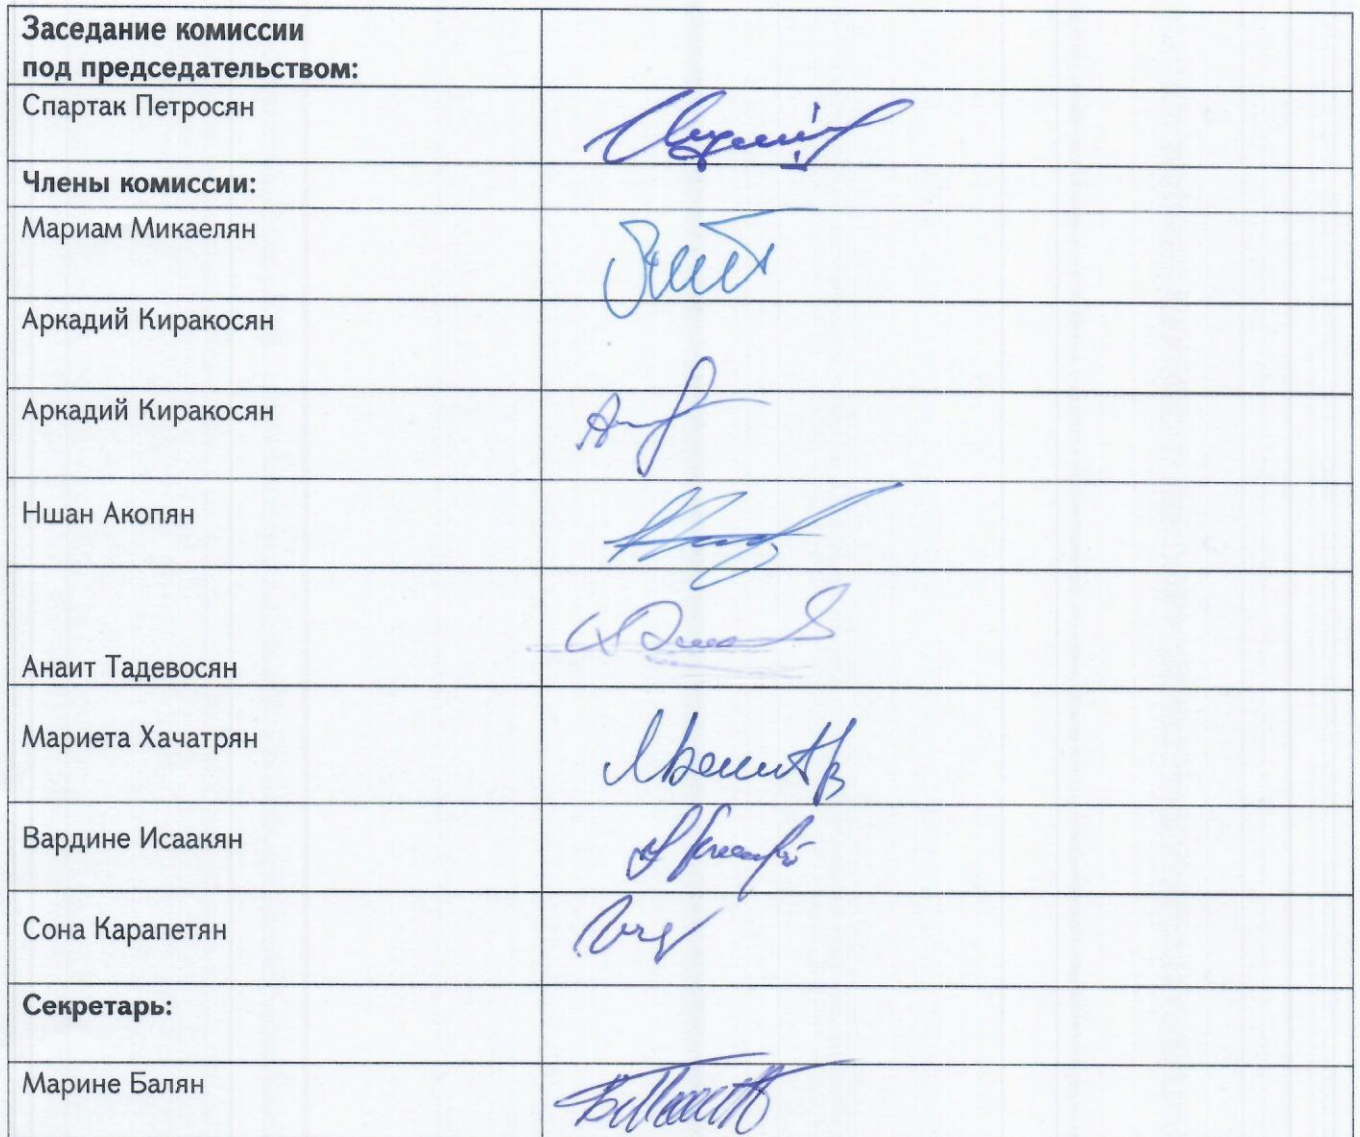 Заседание комиссии
под председательством:
Спартак Петросян
Члены комиссии:
Мариам Микаелян
Аркадий Киракосян
Аркадий Киракосян
Ншан Акопян
Анаит Тадевосян
Мариета Хачатрян
Вардине Исаакян
Сона Карапетян
Секретарь:
Марине Балян